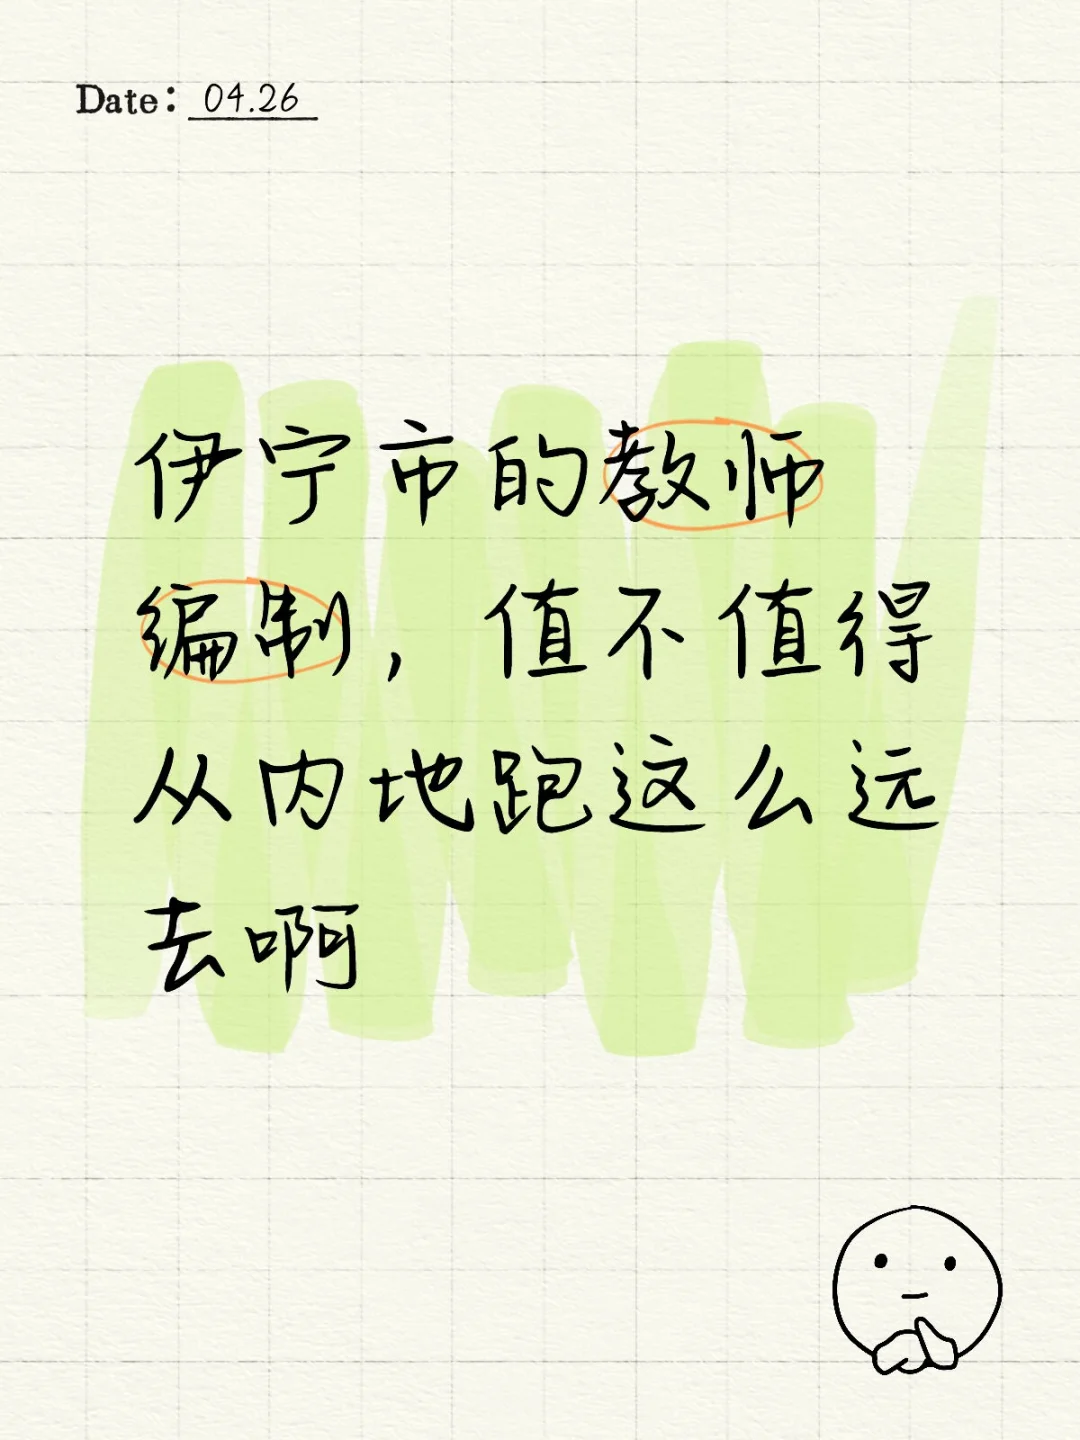 Date: 04.26
伊宁市的教师
编制，值不值得
从内地跑这么远
去啊